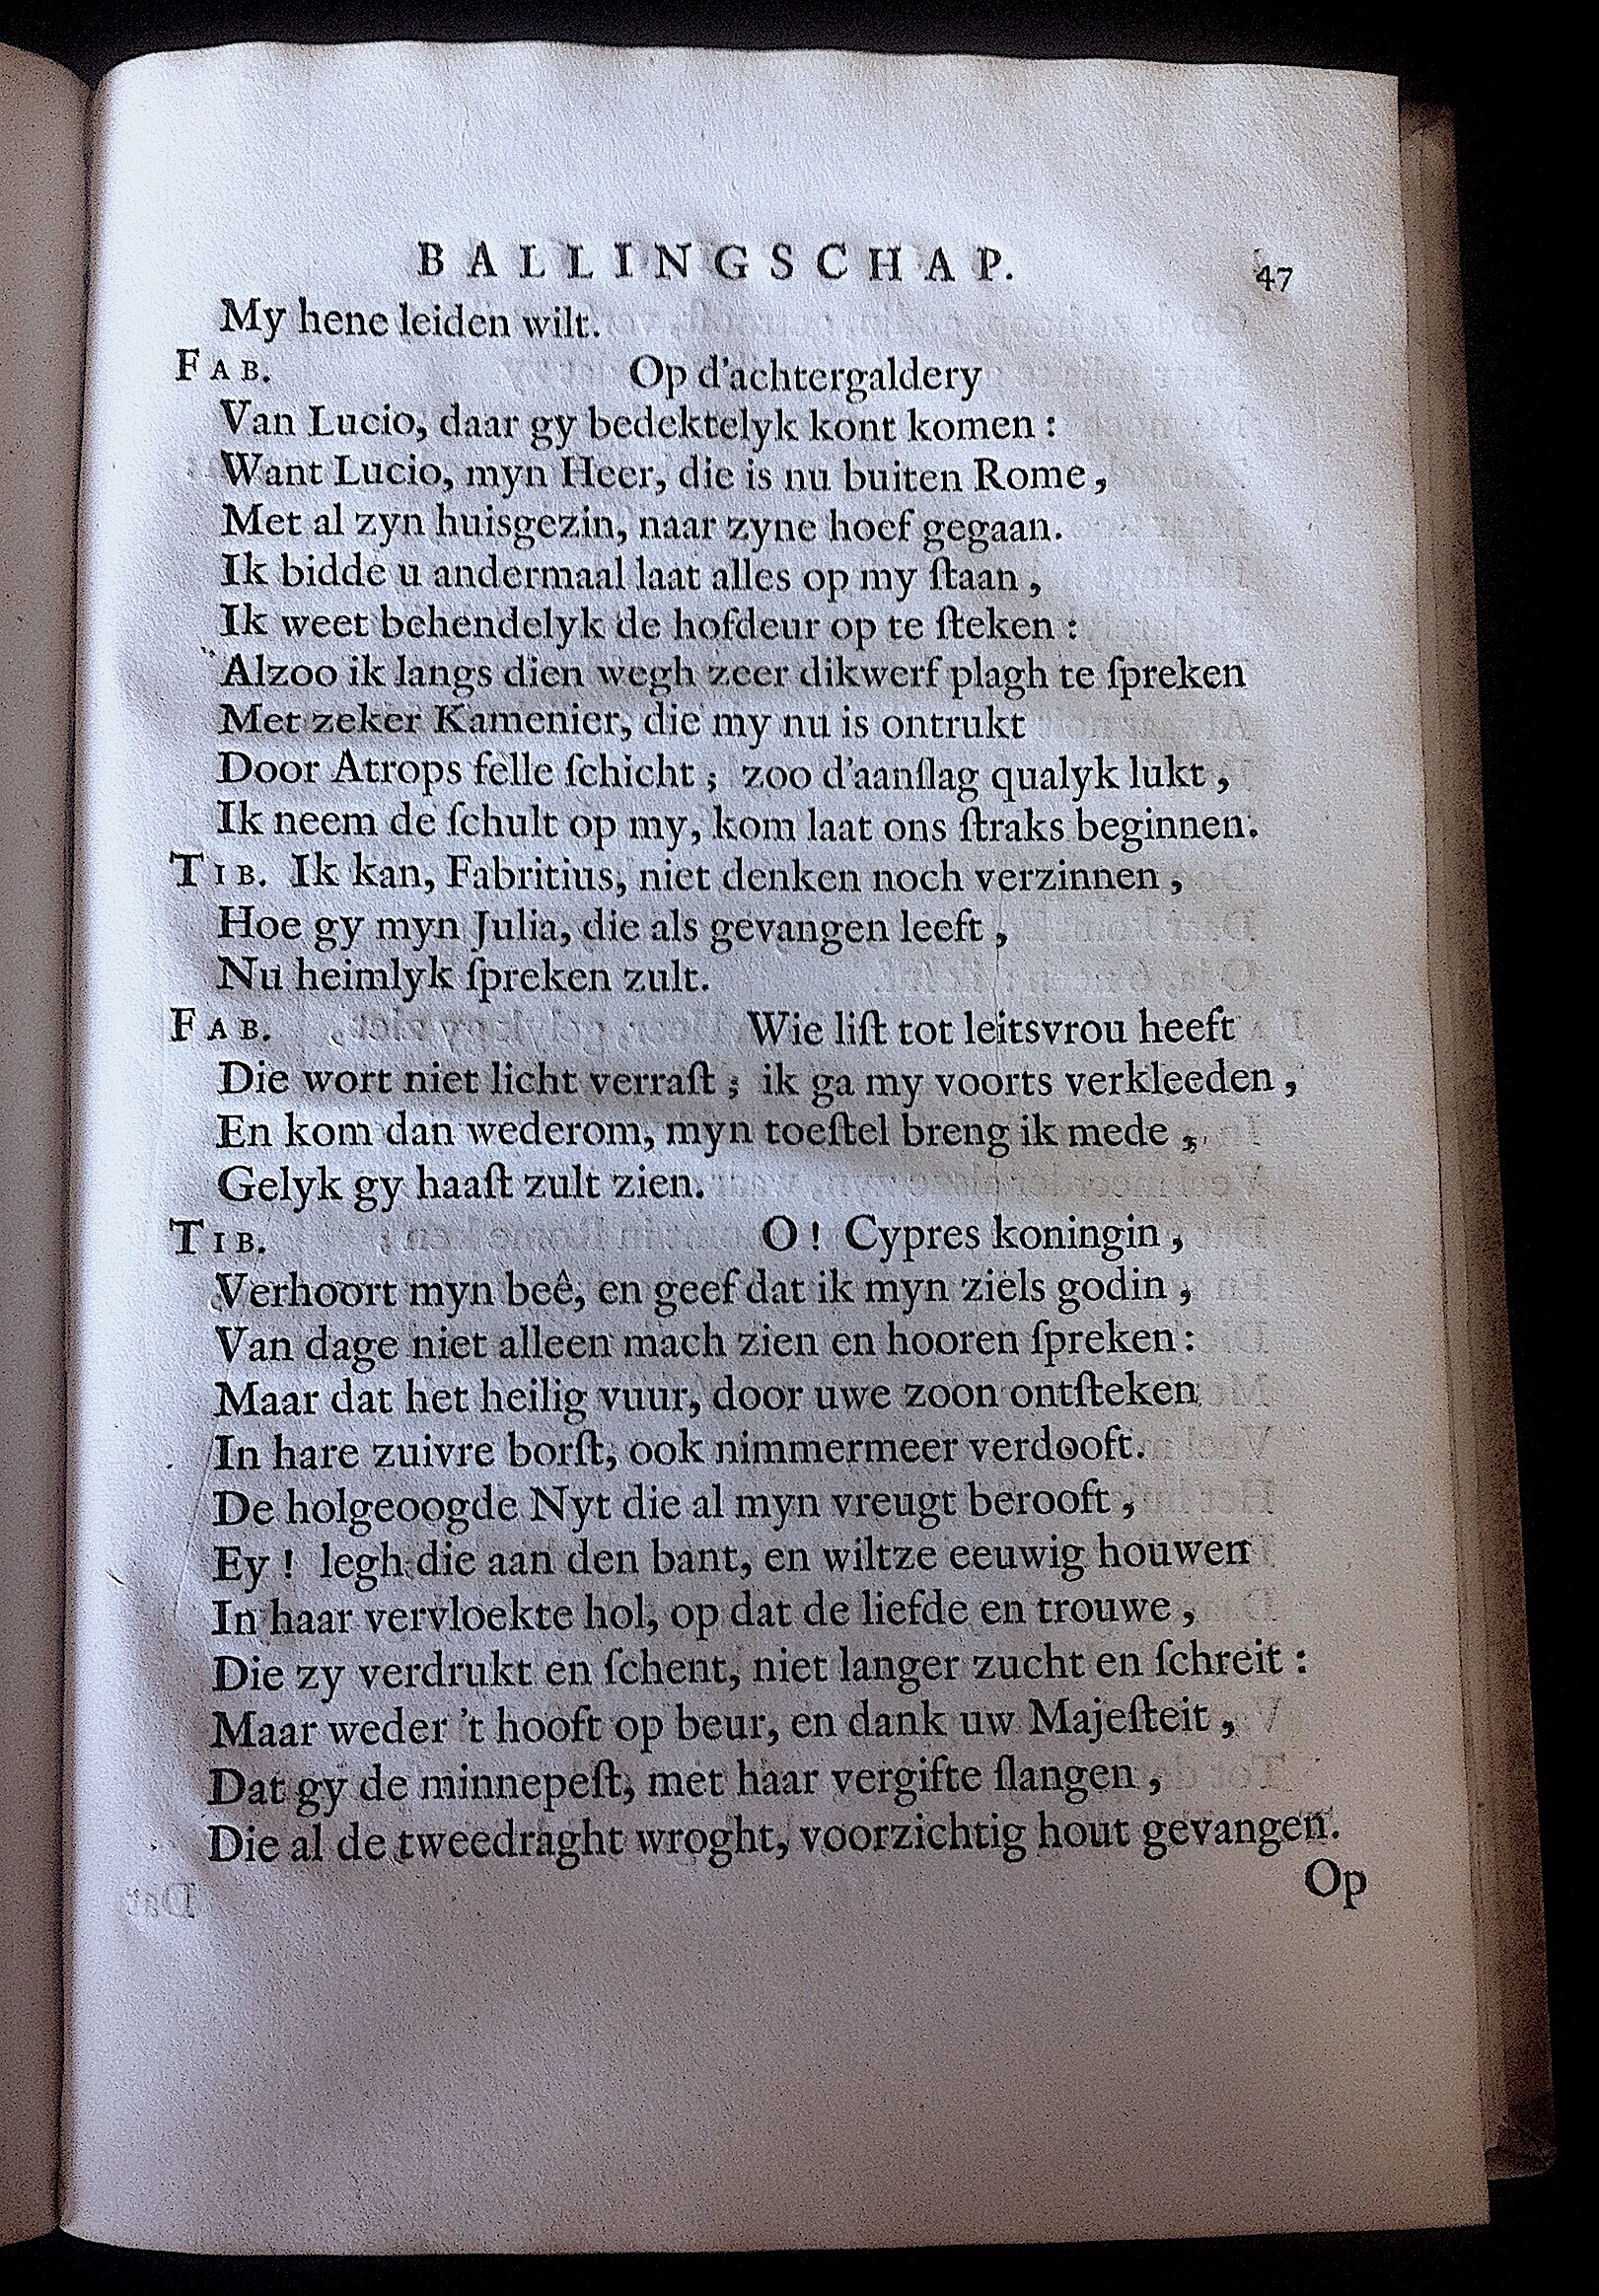 BALLINGSCHAP. 47
My hene leiden wilt.
FAB. Op d'achtergaldery
Van Lucio, daar gy bedektelyk kont komen :
Want Lucio, myn Heer, die is nu buiten Rome,
Met al zyn huisgezin, naar zyne hoef gegaan.
Ik bidde u andermaal laat alles op my ſtaan,
Ik weet behendelyk de hofdeur op te ſteken :
Alzoo ik langs dien wegh zeer dikwerf plagh te ſpreken
Met zeker Kamenier, die my nu is ontrukt
Door Atrops felle ſchicht ; zoo d'aanſlag qualyk lukt,
Ik neem de ſchult op my, kom laat ons ſtraks beginnen.
TIB. Ik kan, Fabritius, niet denken noch verzinnen,
Hoe gy myn Julia, die als gevangen leeft,
Nu heimlyk ſpreken zult.
FAB. Wie liſt tot leitsvrou heeft
Die wort niet licht verraſt ; ik ga my voorts verkleeden,
En kom dan wederom, myn toeſtel breng ik mede,
Gelyk gy haaſt zult zien.
TIB. O ! Cypres koningin,
Verhoort myn beê, en geef dat ik myn ziels godin,
Van dage niet alleen mach zien en hooren ſpreken :
Maar dat het heilig vuur, door uwe zoon ontſteken
In hare zuivre borſt, ook nimmermeer verdooft.
De holgeoogde Nyt die al myn vreugt berooft,
Ey ! legh die aan den bant, en wiltze eeuwig houwen
In haar vervloekte hol, op dat de liefde en trouwe,
Die zy verdrukt en ſchent, niet langer zucht en ſchreit :
Maar weder 't hooft op beur, en dank uw Majeſteit,
Dat gy de minnepeſt, met haar vergifte ſlangen,
Die al de tweedraght wroght, voorzichtig hout gevangen.
Op